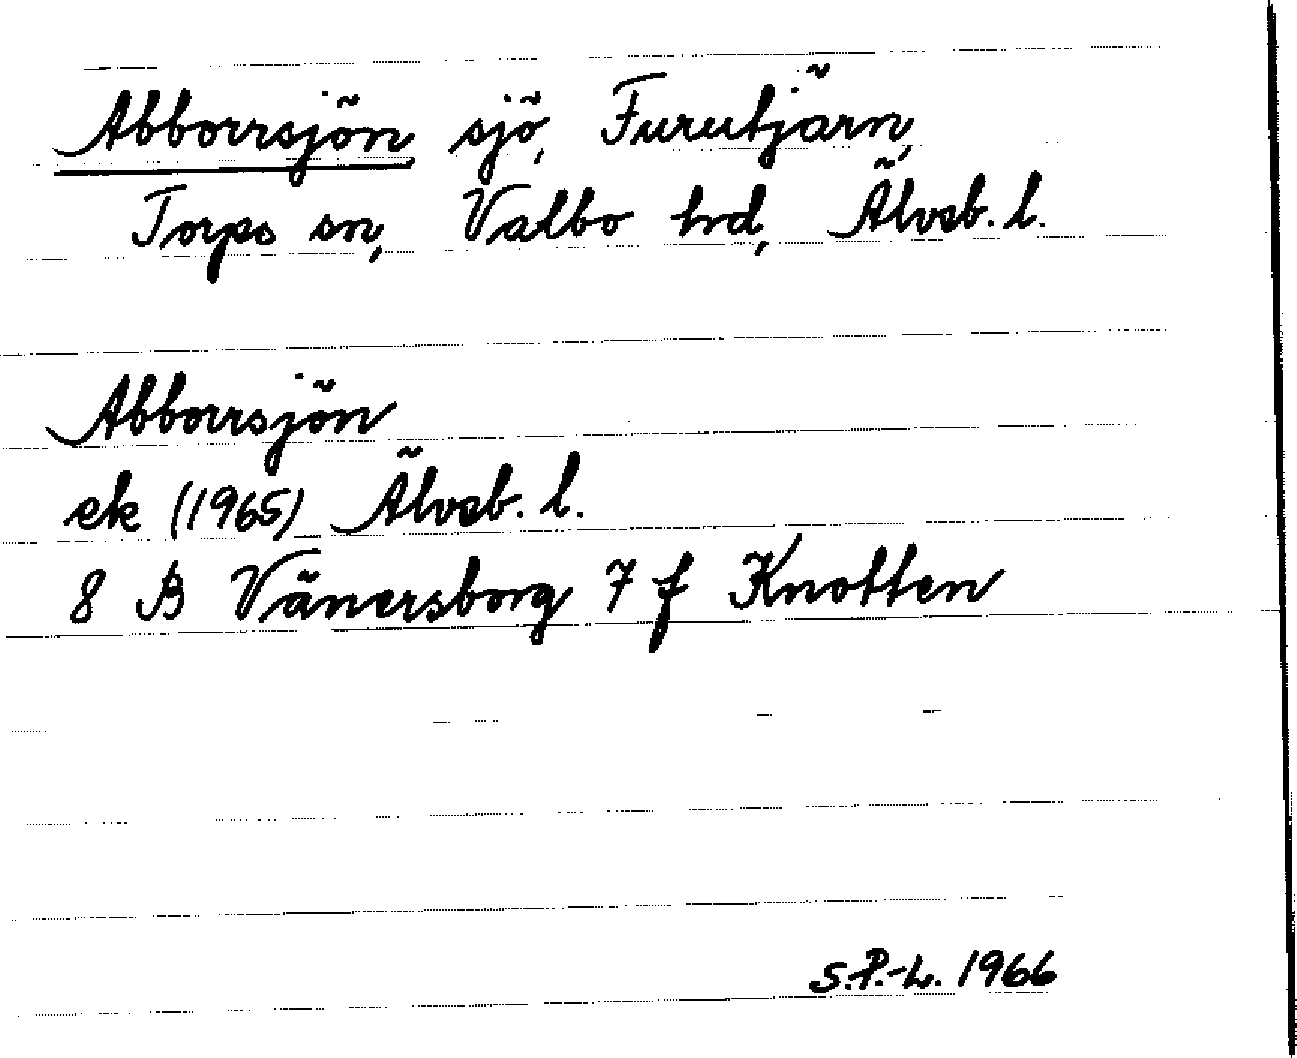 Abborrsjön sjö, Furutjärn,
Torps sn, Valbo hrd, Älvsb. l.
Abborrsjön
ek (1965) Älvsb. l.
8 B Vänersborg 7 f Knotten
S.P.-L. 1966